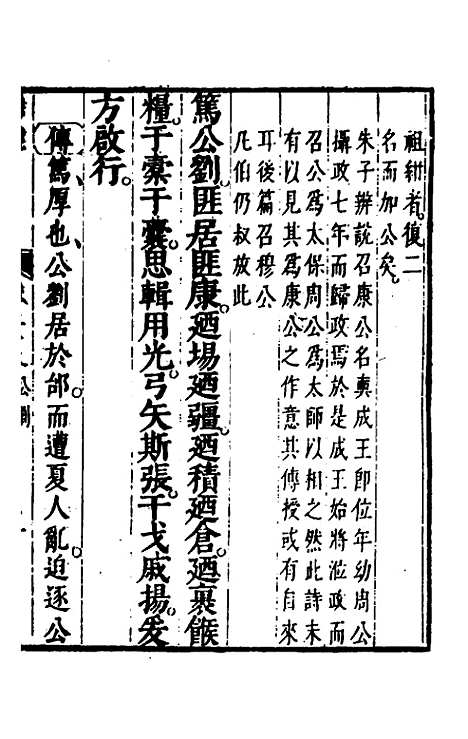 祖紺者復二
名而加公矣
朱子辨說召康公名奭成王卽位年幼周公
攝政七年而歸政焉於是成王始將涖政而
召公爲太保周公爲太師以相之然此詩未
有以見其爲康公之作意其傳授或有自來
耳後篇召穆公
凡伯仍叔放此
篤公劉匪居匪康廼場廼疆廼積廼倉廼裹餱
糧于橐于囊思輯用光弓矢斯張干戈戚揚爰
方啟行
傳篤厚也公劉居於邰而遭夏人亂迫逐公